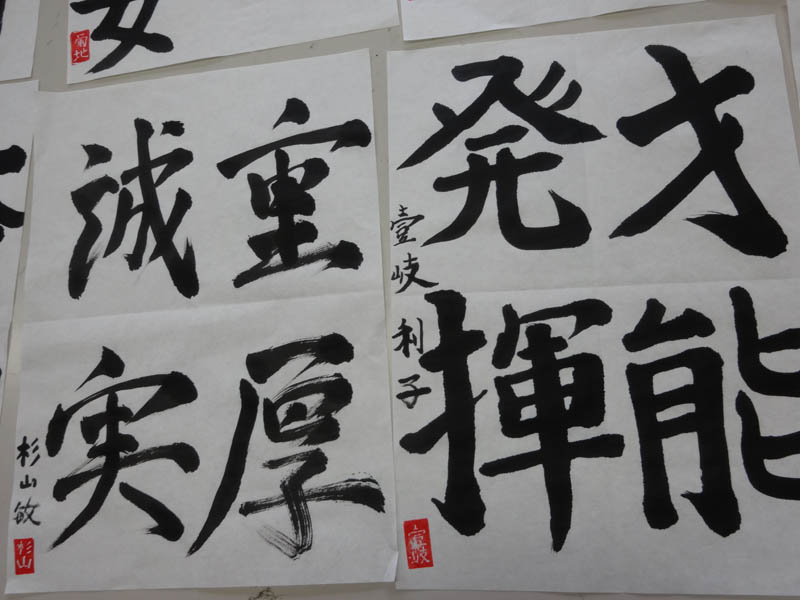 才能
発揮
壹岐利子
壹岐
重厚
誠実
杉山敏
杉山
女
菊地